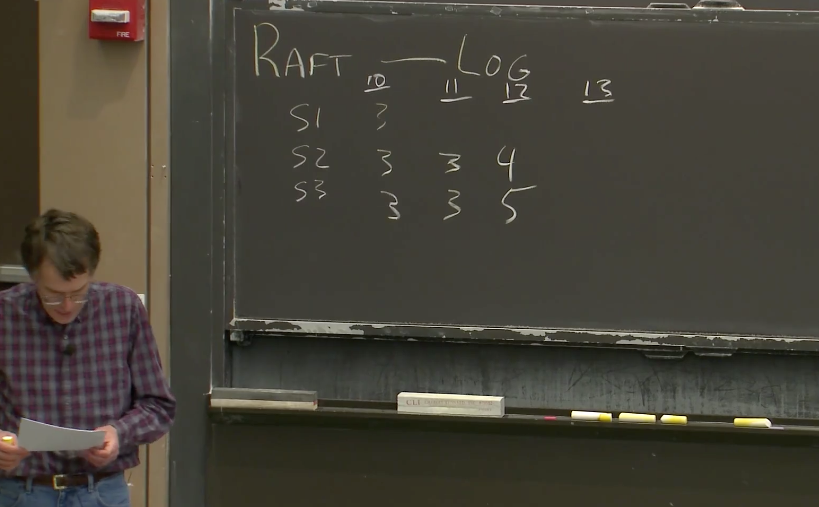 FIRE
RAFT — LOG
10 11 12 13
S1 3
S2 3 3 4
S3 3 3 5